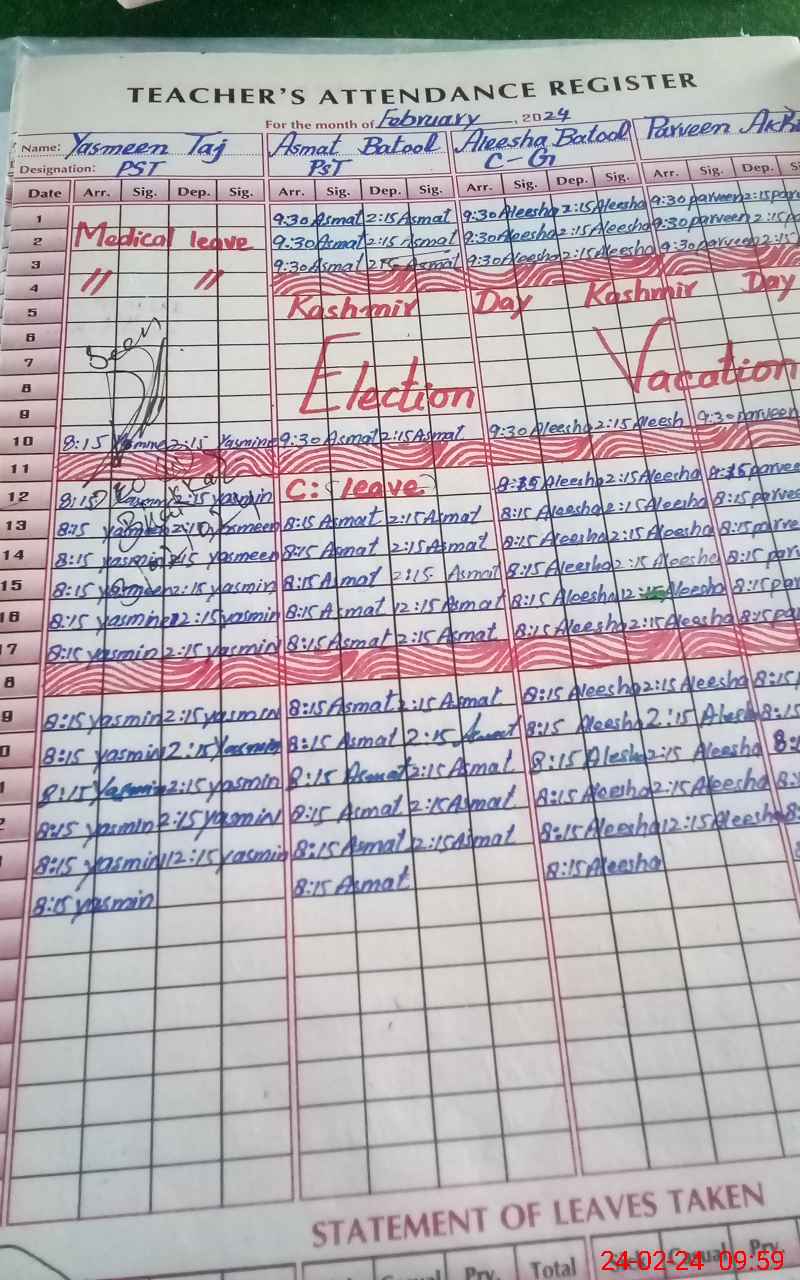 TEACHER'S ATTENDANCE REGISTER
For the month of February, 2024
Name: Yasmeen Taj Asmat Batool Aleesha Batool Parveen
Designation: PST PST C-G
Date Arr. Sig. Dep. Sig. Arr. Sig. Dep. Sig. Arr. Sig. Dep. Sig. Arr. Sig. Dep.
1 9:30 Asmat 2:15 Asmat 9:30 Aleesha 2:15 Aleesha 9:30 parveen 2:15
2 Medical leave 9:30 Asmat 2:15 Asmat 9:30 Aleesha 2:15 Aleesha 9:30 parveen 2:15
3 9:30 Asmat 2:15 Asmat 9:30 Aleesha 2:15 Aleesha 9:30 parveen 2:15
4 // //
5 Kashmir Day Kashmir Day
6 Seen
7 Election Vacation
8
9
10 8:15 Yasmine 2:15 Yasmine 9:30 Asmat 2:15 Asmat 9:30 Aleesha 2:15 Aleesh 9:30 parveen
11
12 8:15 yasmin 2:15 yasmin C: leave 8:15 Aleesha 2:15 Aleesha 8:15
13 8:15 yasmeen 2:15 yasmeen 8:15 Asmat 2:15 Asmat 8:15 Aleesha 2:15 Aleesha 8:15
14 8:15 yasmin 2:15 yasmeen 8:15 Asmat 2:15 Asmat 8:15 Aleesha 2:15 Aleesha 8:15
15 8:15 yasmeen 2:15 yasmin 8:15 Asmat 2:15 Asmat 8:15 Aleesha 2:15 Aleesha 8:15
16 8:15 yasmine 12:15 yasmin 8:15 Asmat 12:15 Asmat 8:15 Aleesha 12:15 Aleesha 8:15
17 8:15 yasmin 2:15 yasmin 8:15 Asmat 2:15 Asmat 8:15 Aleesha 2:15 Aleesha 8:15
8
9 8:15 yasmin 2:15 yasmin 8:15 Asmat 2:15 Asmat 8:15 Aleesha 2:15 Aleesha 8:15
0 8:15 yasmin 2:15 Yasmin 8:15 Asmat 2:15 Asmat 8:15 Aleesha 2:15 8:15
1 8:15 Yasmin 2:15 yasmin 8:15 Asmat 2:15 Asmat 8:15 Alesha 2:15 Aleesha
2 8:15 yasmin 2:15 yasmin 8:15 Asmat 2:15 Asmat 8:15 Aleesha 2:15 Aleesha
8:15 yasmin 12:15 yasmin 8:15 Asmat 12:15 Asmat 8:15 Aleesha 12:15 Aleesha
8:15 yasmin 8:15 Asmat 8:15 Aleesha
STATEMENT OF LEAVES TAKEN
Prv. Total Casual Prv.
24-02-24 09:59